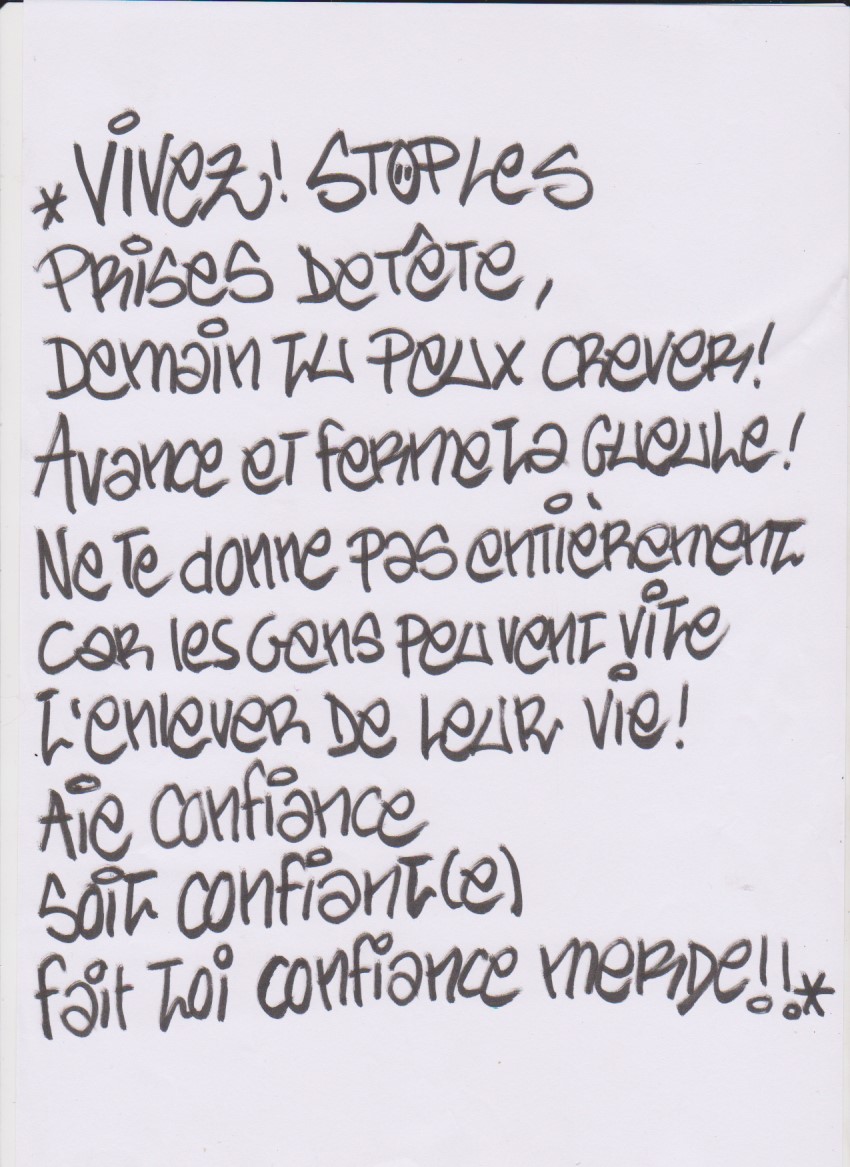 *Vivez! STOP Les
Prises De Tête,
Demain Tu Peux Crever!
Avance et ferme Ta Gueule!
Ne Te donne pas entièrement
Car les Gens peuvent vite
L'enlever De Leur vie!
Aie Confiance
Soit Confiant(e)
fait Toi Confiance merde!!*